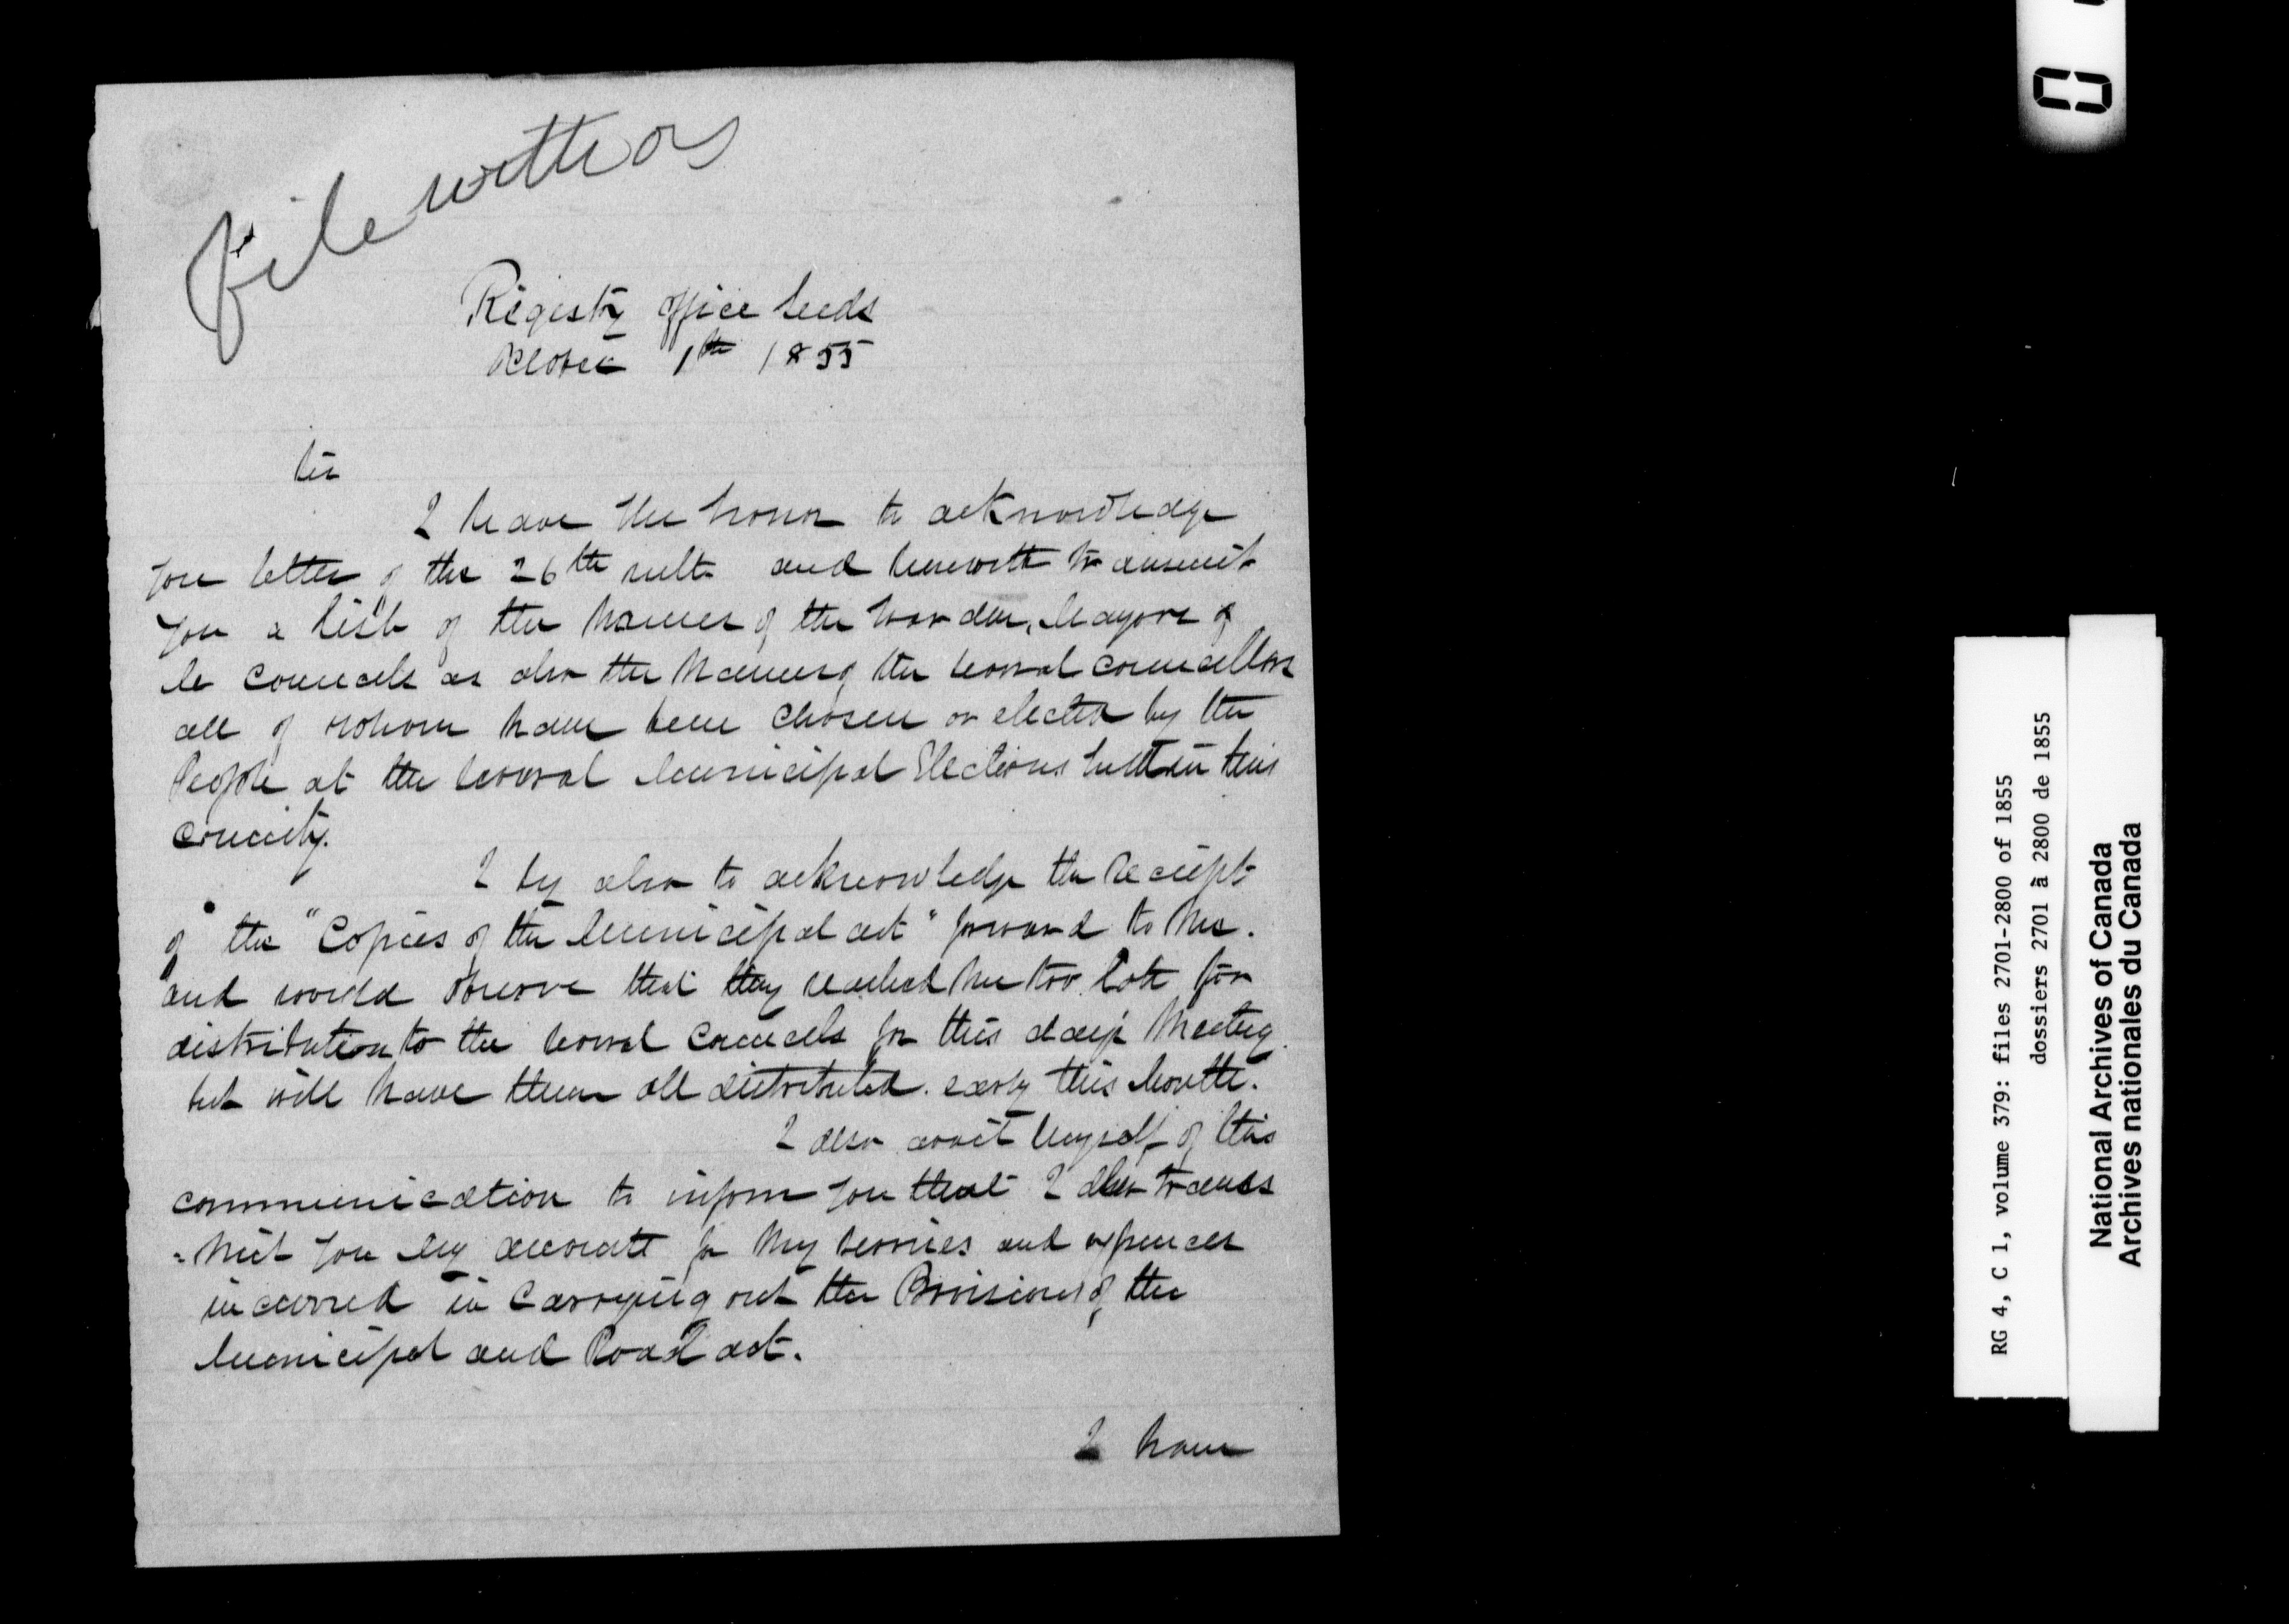 file with
Registry office Leeds
October 1th 1855
Sir
I have the honor to acknowledge
your letter of the 26th ult. and herewith transmit
you a list of the Names of the Warden, Mayors of
Councils as also the Names of the several councillors
all of whom have been chosen or elected by the
People at the several Municipal Elections held in this
County.
I beg also to acknowledge the Receipt
of the "Copies of the Municipal act" forward to Me.
and would observe that they reached me too late for
distribution to the several Councils for this days Meeting.
but will have them all distributed early this Month.
I also avail Myself of this
communication to inform you that I also trans
=mit you My account for My services and expences
incurred in Carrying out the Provisions of the
Municipal and Road act.
I have
RG 4, C 1, volume 379: files 2701-2800 of 1855
dossiers 2701 à 2800 de 1855
National Archives of Canada
Archives nationales du Canada